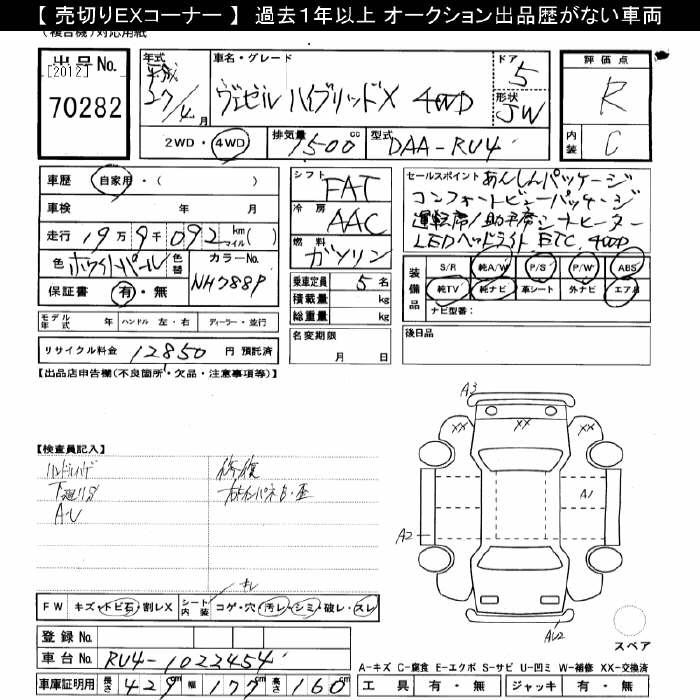 【 売切りEXコーナー 】 過去1年以上 オークション出品歴がない車両
(複合機)対応用紙
出品No.
[2012]
70282
年式 平成 27/4月
車名・グレード
ヴェゼル ハイブリッドX 4WD
ドア 5
形状 JW
評価点
R
内装 C
2WD・4WD 排気量 1500cc 型式 DAA-RU4
車歴 自家用・( )
車検 年 月
走行 19万9千092 km マイル( )
色 ホワイトパール 色替
カラーNo. NH788P
保証書 有・無
シフト FAT
冷房 AAC
燃料 ガソリン
乗車定員 5名
積載量 kg
総重量 kg
セールスポイント あんしんパッケージ
コンフォートビューパッケージ
運転席/助手席シートヒーター
LEDヘッドライト ETC. 4WD
装備品 S/R 純A/W P/S P/W ABS
純TV 純ナビ 革シート 外ナビ エア
ナビ型番:
モデル年式 年 ハンドル 左・右 ディーラー・並行
名変期限 月 日
後日品
リサイクル料金 12850 円 預託済
【出品店申告欄(不良箇所・欠品・注意事項等)】
【検査員記入】
ハンドルハゲ
下廻りサビ
A・U
修復
A3
XX XX XX
A1
A2
AU2
スペア
キレ
FW キズ・トビ石・割レX シート内装 コゲ・穴・汚レ・シミ・破レ・スレ
登録No.
車台No. RU4-1022454
車庫証明用 長さ 429cm 幅 177cm 高さ 160cm
A-キズ C-腐食 E-エクボ S-サビ U-凹ミ W-補修 XX-交換済
工具 有・無 ジャッキ 有・無